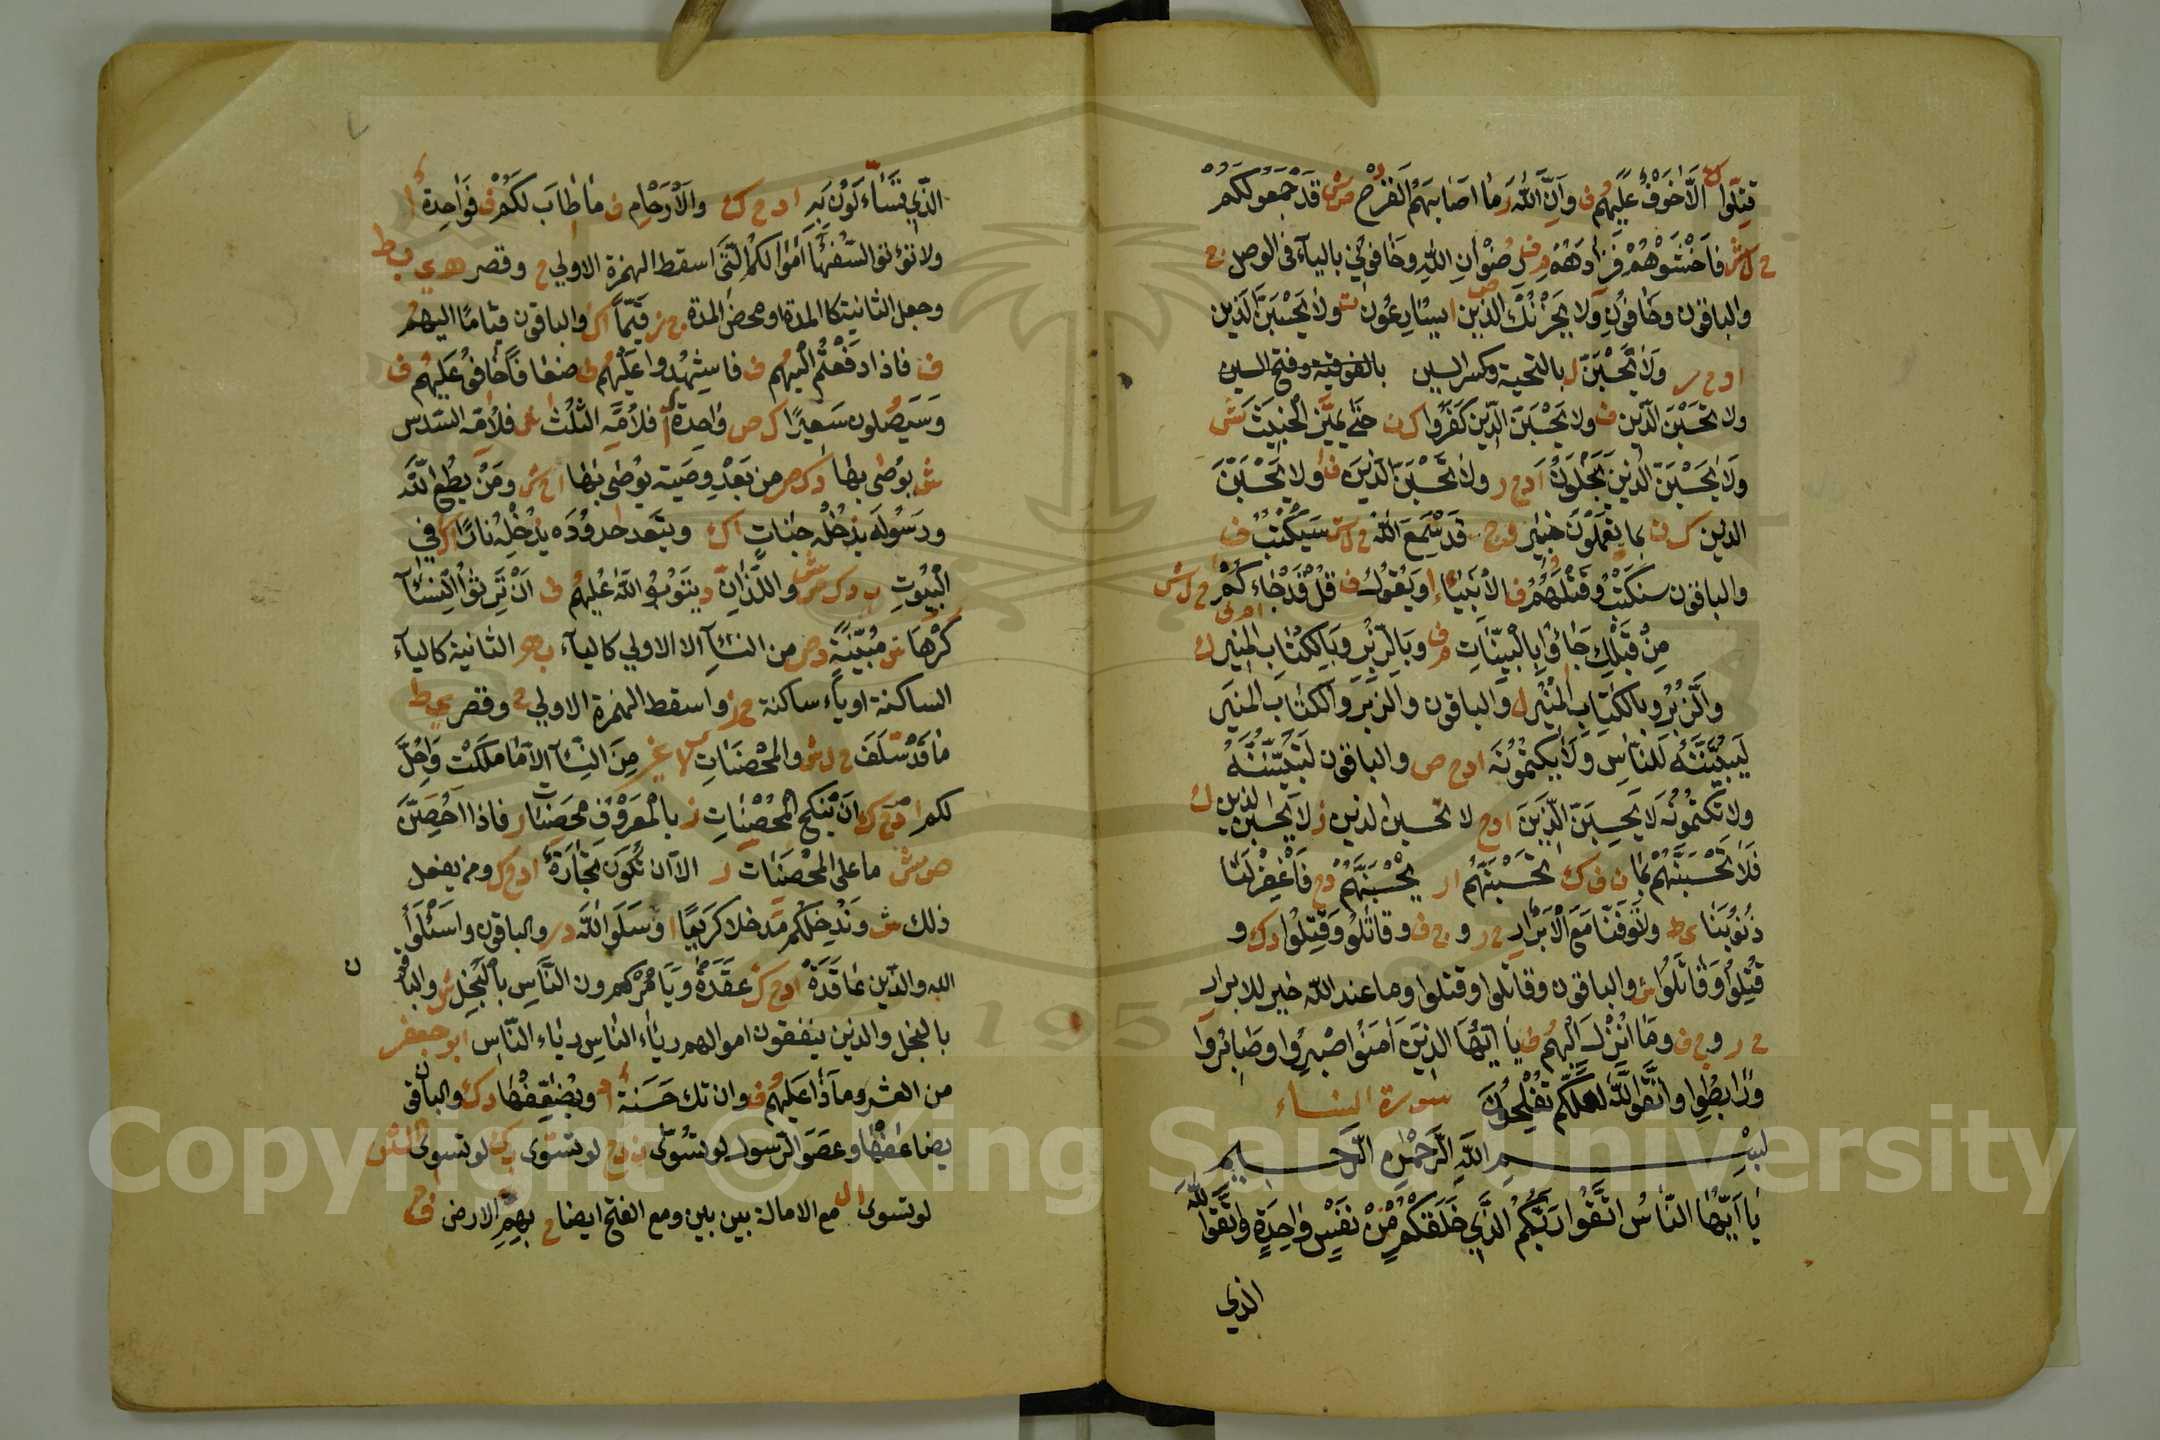 قتلوا ك الا خوف عليهم ف وان الله ر ما اصابهم القرح ص ش قد جمعوا لكم
ح ل ش فاخشوهم فزادهم م رضوان الله وخافوني بالياء في الوصل ج
والباقون وخافون ولا يحزنك الذين ا يسارعون ت ولا يحسبن الذين
ا د ح ر ولا يحسبن ل بالتحية وكسر السين بالفوقية وفتح السين
ولا تحسبن الذين ف ولا يحسبن الذين كفروا ك ن حتى يميز الخبيث ش
ولا يحسبن الذين يبخلون ا د ح ر ولا تحسبن الذين ف ولا يحسبن
الذين ك ن بما يعملون خبير د ح قد سمع الله ح ل ش سيكتب ف
والباقون سنكتب وقتلهم ف الانبياء ا ويقول ف قل قد جاءكم ح ل ش
من قبلك جاؤا بالبينات م ف وبالزبر وبالكتاب المنير ل
والزبر وبالكتاب المنير ل والباقون والزبر والكتاب المنير
ليبيننه للناس ولا يكتمونه ا د ح ص والباقون لتبيننه
ولا تكتمونه لا يحسبن الذين ا د ح لا تحسبن الذين ز لا يحسبن الذين ك
فلا تحسبنهم بما ن ف ك تحسبنهم ا ر يحسبنهم د ح فاغفر لنا
ذنوبنا ي ط وتوفنا مع الابرار ح ر و ج ف وقاتلوا وقتلوا د ك و
قتلوا وقاتلوا ش والباقون وقاتلوا وقتلوا وما عند الله خير للابرار
ح ر و ج ف وما انزل اليهم ف يا ايها الذين امنوا اصبروا وصابروا
ورابطوا واتقوا الله لعلكم تفلحون سورة النساء
بسم الله الرحمن الرحيم
يا ايها الناس اتقوا ربكم الذي خلقكم من نفس واحدة واتقوا الله
الذي
الذي تساءلون به ا د ح ك والارحام ف ما طاب لكم ف فواحدة ا
ولا تؤتوا السفهاء اموالكم التي اسقط الهمزة الاولى ح وقصر هـ ي ب ط
وجعل الثانية كالمدة او محض المدة ج ز قيما ا ك والباقون قياما اليهم
ف فاذا دفعتم اليهم ف فاشهدوا عليهم ف ضعافا خافوا عليهم ف
وسيصلون سعيرا ك ص واحدة ا فلامه الثلث ش فلامه السدس
ش يوصى بها د ك ص من بعد وصية يوصى بها ا ح ش ومن يطع الله
ورسوله يدخله جنات ا ك ويتعد حدوده يدخله نارا ا ك في
البيوت ب د ك ش واللذان د يتوب الله عليهم ف ان ترثوا النساء
كرها ش مبينة د ص من النساء الا الاولى كالياء ب هـ الثانية كالياء
الساكنة او ياء ساكنة ج ز واسقط الهمزة الاولى ح وقصر ي ط
ما قد سلف ح ل ش والمحصنات لا غير من النساء الا ما ملكت واحل
لكم ا د ح ك ان ينكح المحصنات ر بالمعروف محصنات ر فاذا احصن
ص ش ما على المحصنات ر الا ان تكون تجارة ا د ح ك ومن يفعل
ذلك ش وندخلكم مدخلا كريما ا وسلوا الله د ر والباقون واسئلوا
الله والذين عاقدت ا د ح ك عقدت ويامركم ون الناس بالبخل ش والباقون
بالبخل والذين ينفقون اموالهم رياء الناس رياء الناس ابو جعفر
من العشر وماذا عليهم ف وان تك حسنة ا ويضعفها د ك والباقون
يضاعفها وعصوا الرسول لو تسوى د ن ح لو تسوى ا ك لو تسوى الش
لو تسوى ال مع الامالة بين بين ومع الفتح ايضا ح بهم الارض ف ح